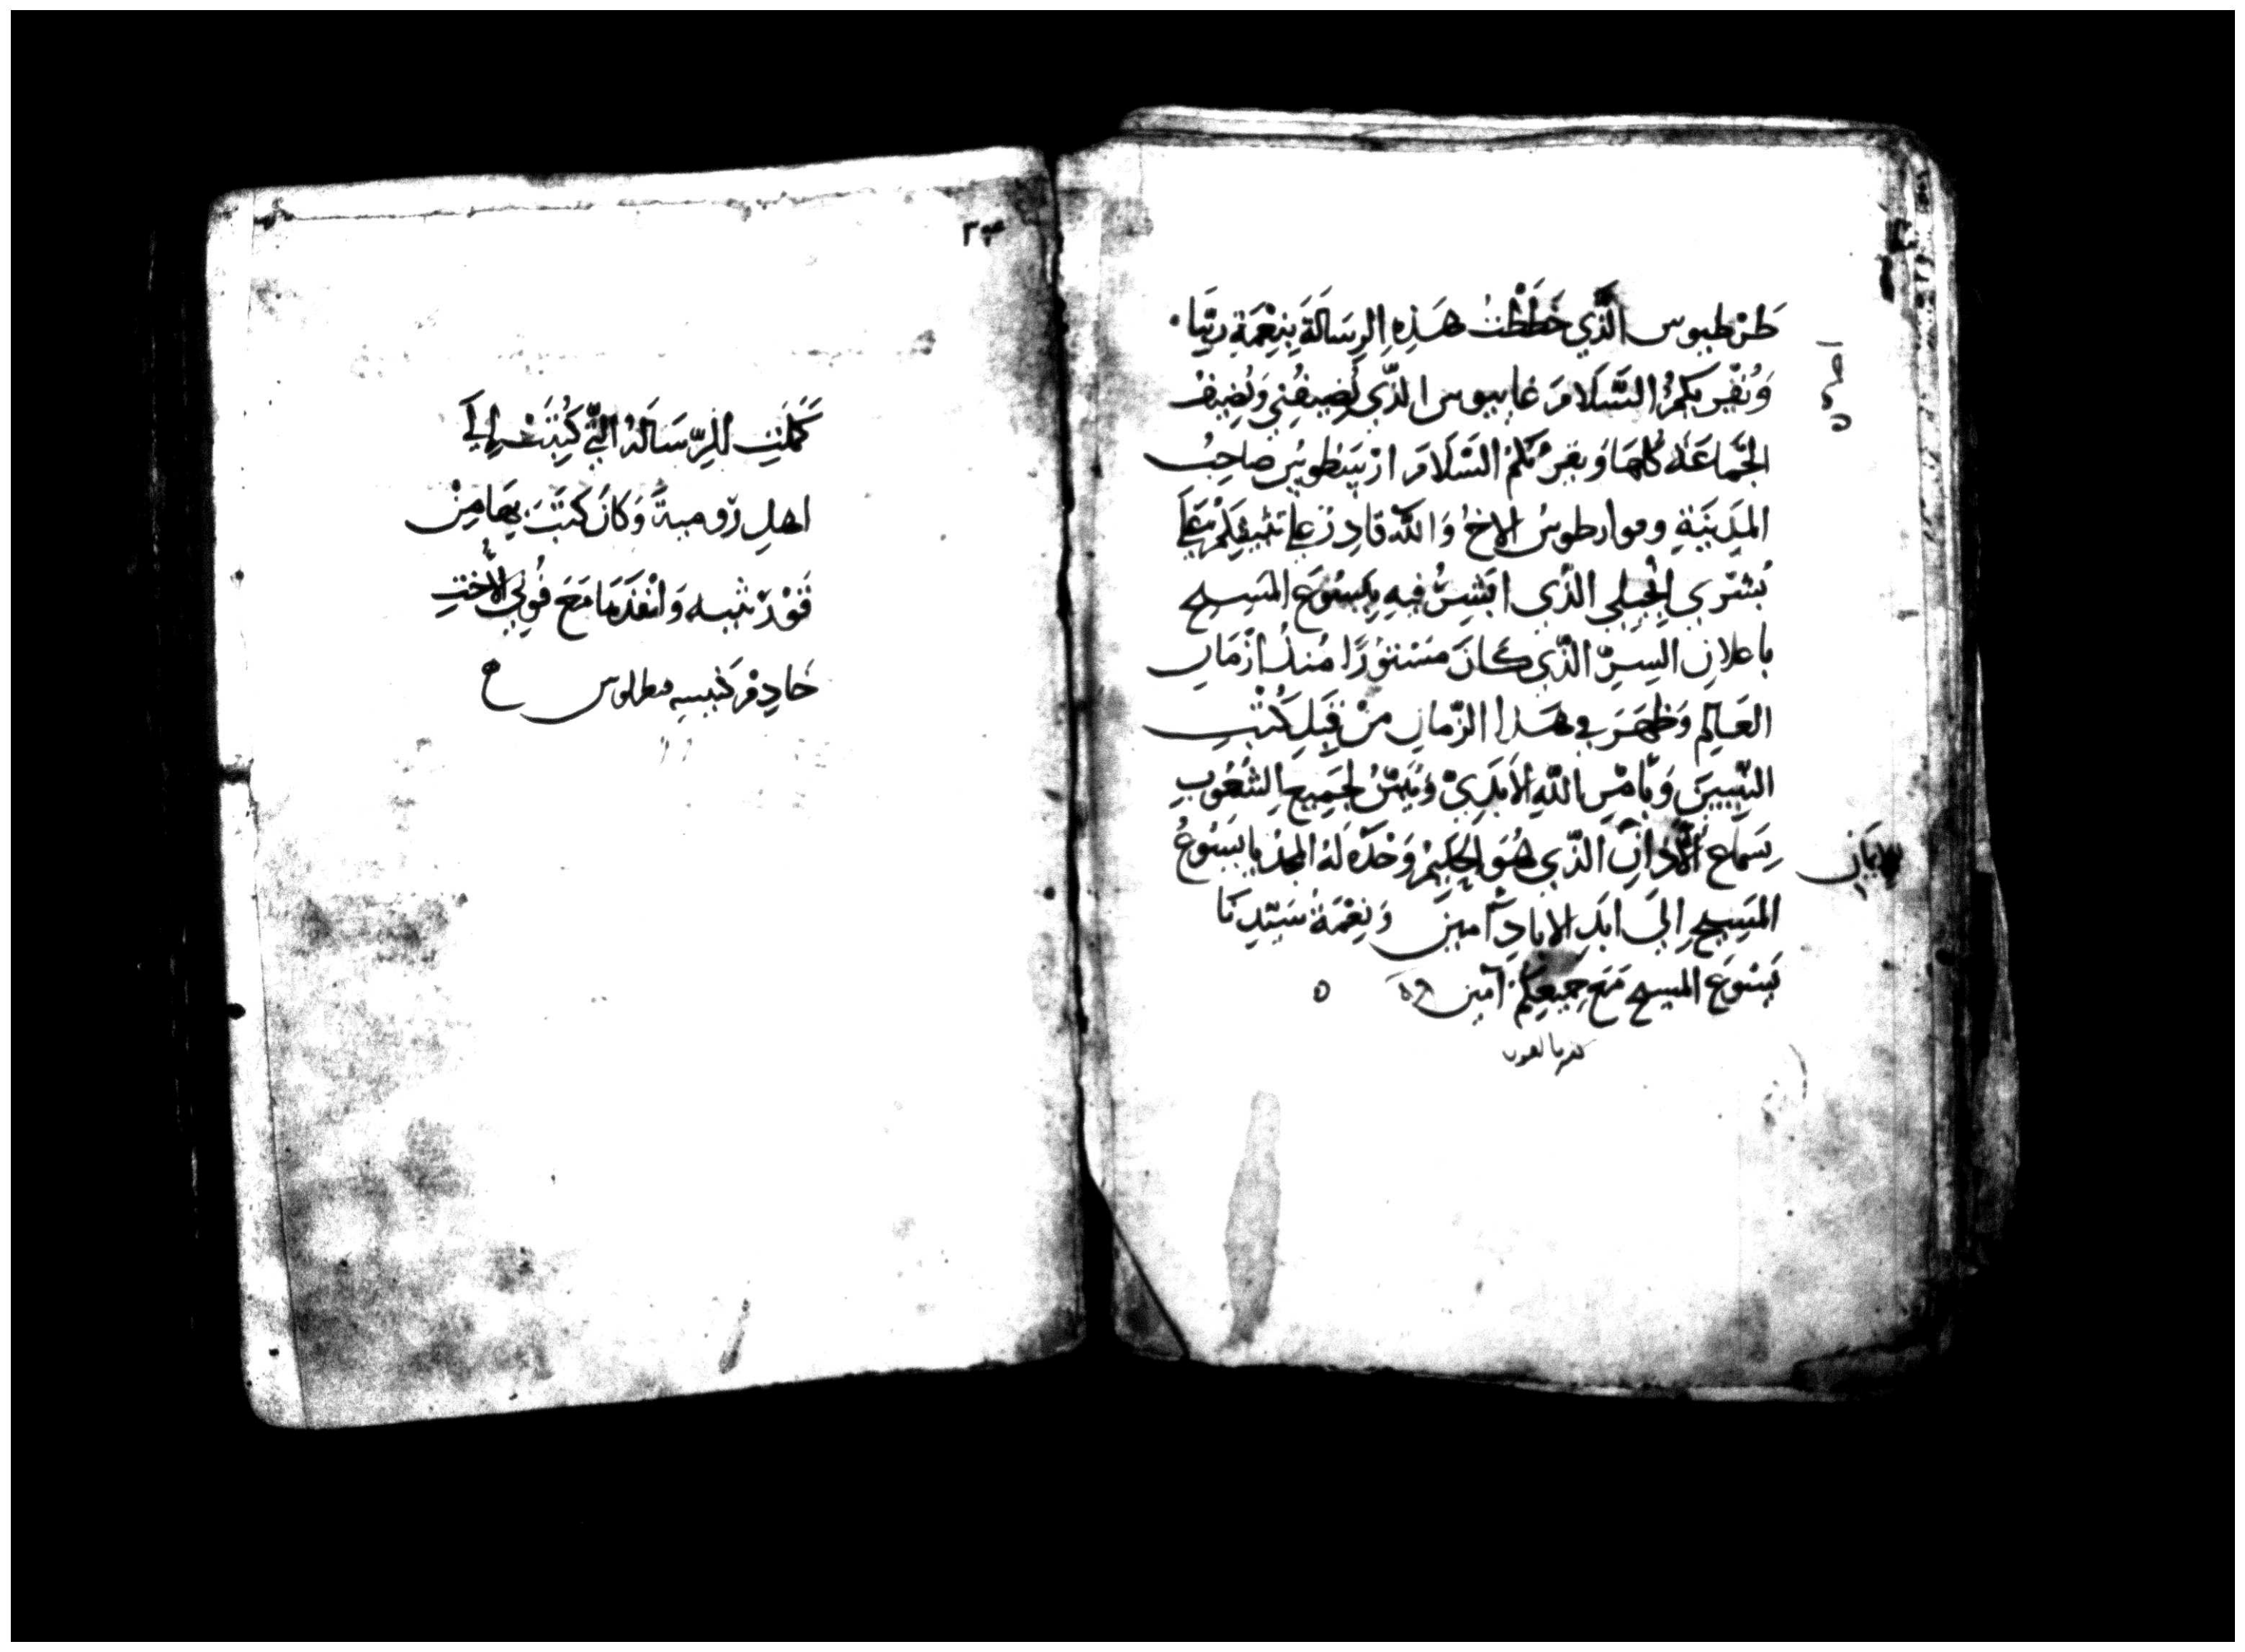 طَرْطيوس الَّذي خَطَطْتُ هَذِهِ الرِسَالَةَ بِنِعْمَةِ رَبِّنا
وَيُقْرِيكُمُ السَّلَامَ غاييوس الذَّي يُضِيفُنِي وَيُضِيفُ
الجَّماعَةَ كُلهَا وَيقرئكمُ السَّلَامَ ارَسَطوس صاحِبُ
المدَينَةِ وموارطوس الاخُ وَاللَّه قادِرٌ عَلى تثبيتِكُمْ عَلَى
بُشرَي اِنجِيلي الذَّي ابَشِرُ فيهِ بِيسُوَع المَسِيح
باعلانِ السِرِّ الذَّي كانَ مَسْتوُرًا منذُ ازْمَان
العَالمِ وَظهَرَ في هَذا الزَّمانِ مِنْ قِبَلِ كُتْبِ
النَّبيينَ وَبأمْرِ اللهِ الاَبَدِيّ وَيُبَيّنُ لجَمِيعِ الشُعُوبِ
بِسَماعِ الَّذي هُوَ الحَكيمُ وَحْدَه لَهُ المَجْدُ بايسُوعُ
المَسِيحِ اِلَي ابَدِ الابادِ آمينَ وَنِعْمَةُ سَيّدِنَا
يَسْوَع المسيح مَعَ جَميعِكُمْ آمين
٣٤
كَمَلَتِ الرِّسَالَةُ التَّي كُتِبَتْ اِلَي
اهلِ رُوميةَ وَكانَ كَتَبَ بِهَا مِنْ
قَوْرَنثيه وَانْفَذَهَا مَعَ فُوبي الأُخْتِ
خَادِمَة كَنيسِيه